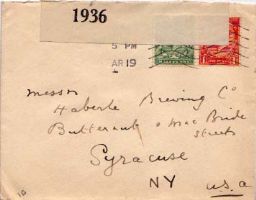 1936
5 PM
AR 19
Messrs
Haberle Brewing Co
Butternut & MacBride
Streets
Syracuse
NY U.S.A